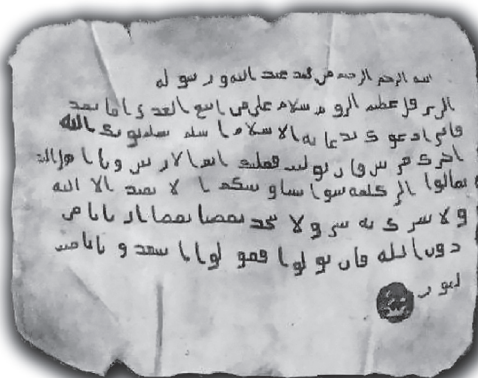 بسم الله الرحمن الرحيم من محمد عبد الله ورسوله
الى هرقل عظيم الروم سلام على من اتبع الهدى اما بعد
فانى ادعوك بدعاية الاسلام اسلم تسلم يوتك الله
اجرك مرتين فان توليت فعليك اثم الاريسين ويا اهل
تعالوا الى كلمة سوا بيننا وبينكم ان لا نعبد الا الله
ولا نشرك به شيئا ولا يتخذ بعضنا بعضا اربابا من
دون الله فان تولوا فقولوا اشهدوا بانا مس
لمون